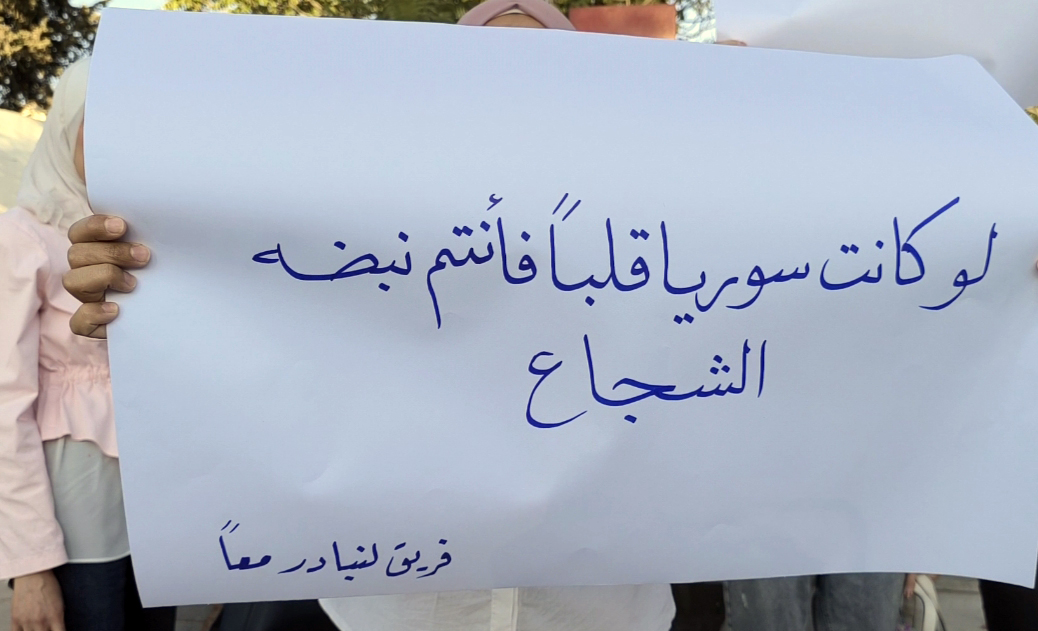 لو كانت سوريا قلباً فأنتم نبضه
الشجاع
فريق لنبادر معاً